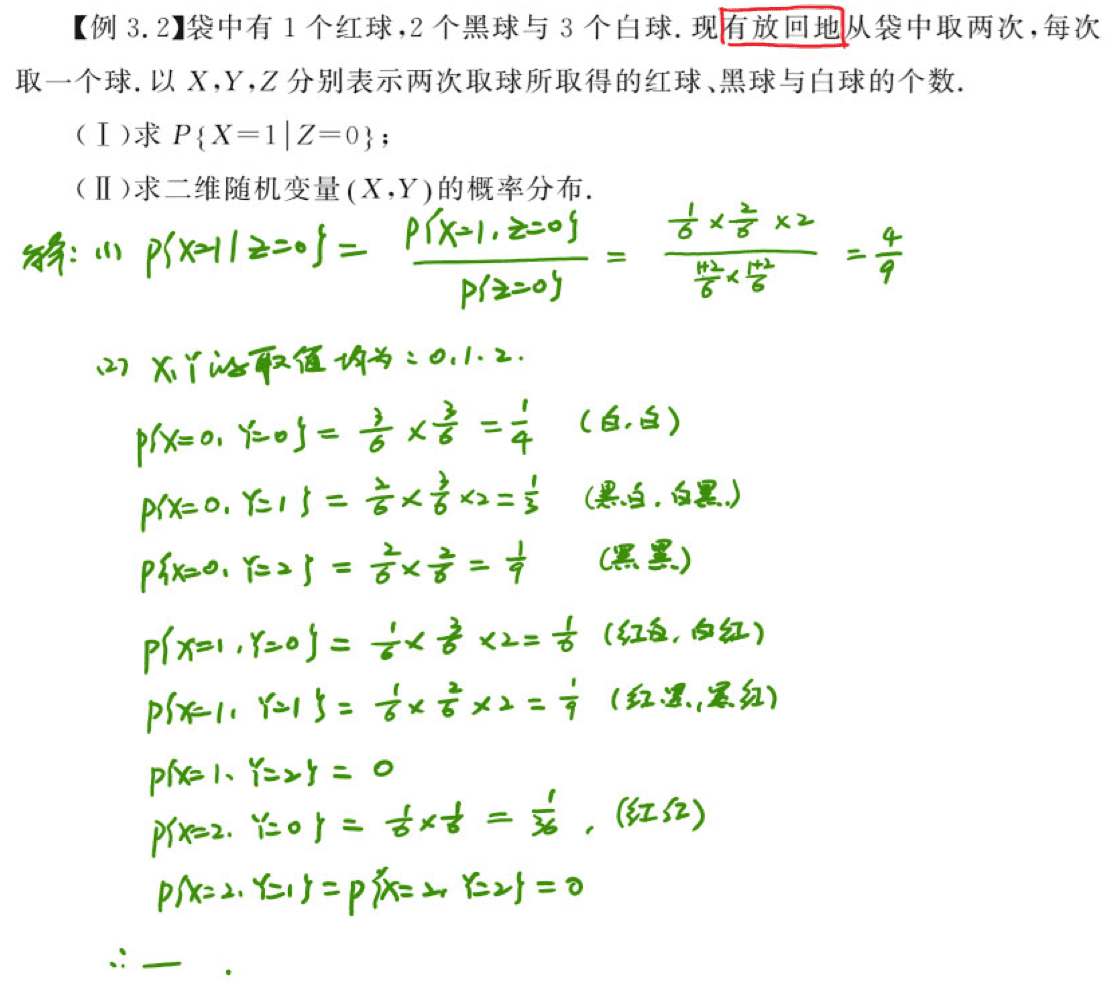 【例 3.2】袋中有 1 个红球,2 个黑球与 3 个白球. 现有放回地从袋中取两次,每次
取一个球. 以 X,Y,Z 分别表示两次取球所取得的红球、黑球与白球的个数.
(Ⅰ)求 P{X=1|Z=0};
(Ⅱ)求二维随机变量(X,Y)的概率分布.
解: (1) P{X=1|Z=0} = P{X=1, Z=0} / P{Z=0} = (1/6 × 2/6 × 2) / ((1+2)/6 × (1+2)/6) = 4/9
(2) X, Y 的取值均为: 0.1.2.
P{X=0, Y=0} = 3/6 × 3/6 = 1/4 (白.白)
P{X=0, Y=1} = 2/6 × 3/6 × 2 = 1/3 (黑白. 白黑)
P{X=0, Y=2} = 2/6 × 2/6 = 1/9 (黑黑)
P{X=1, Y=0} = 1/6 × 3/6 × 2 = 1/6 (红白, 白红)
P{X=1, Y=1} = 1/6 × 2/6 × 2 = 1/9 (红黑, 黑红)
P{X=1, Y=2} = 0
P{X=2, Y=0} = 1/6 × 1/6 = 1/36, (红红)
P{X=2, Y=1} = P{X=2, Y=2} = 0
∴ — .